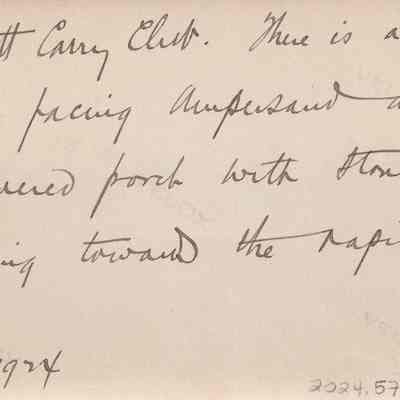 tt Carry Club. There is a
facing Ampersand a
vered porch with ston
ing toward the rapi
1924
2024.57